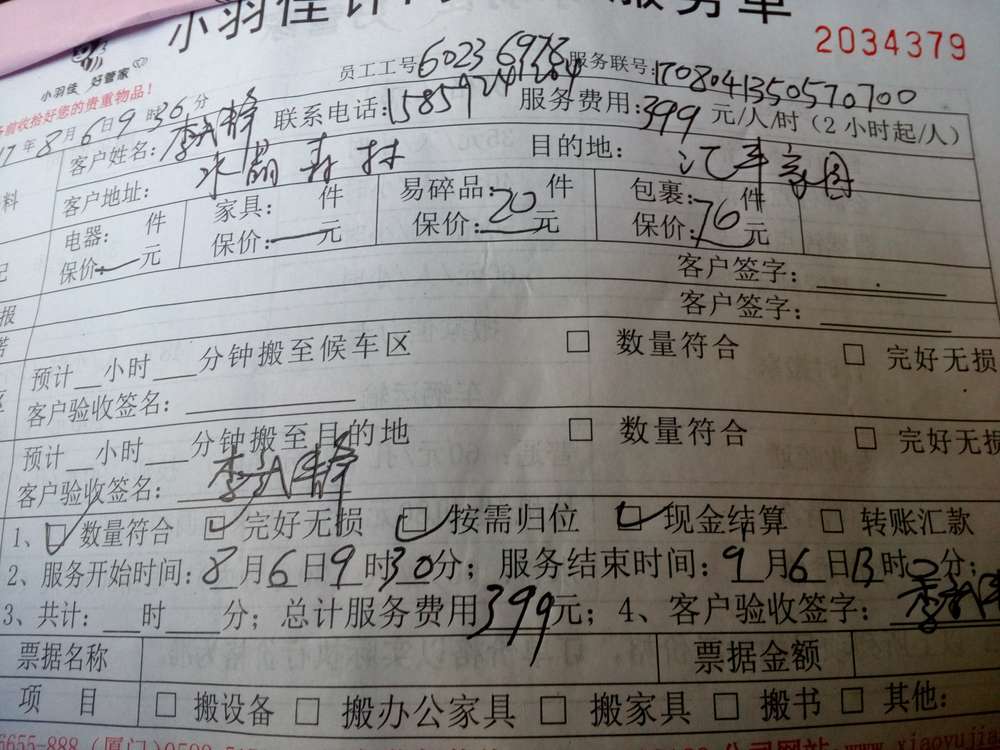 小羽佳 服务单
2034379
小羽佳 好管家
前收拾好您的贵重物品！
员工工号:6023 6978 服务联号:170804135057 0700
17年8月6日9时30分
联系电话: 服务费用:399元/人/时（2小时起/人）
客户姓名:李武静
客户地址:水晶森林 目的地:汇丰家园
电器: 件 家具: 件 易碎品: 件 包裹: 件
保价: 元 保价: 元 保价:20元 保价:76元
客户签字:
客户签字:
预计__小时___分钟搬至候车区 □ 数量符合 □ 完好无损
客户验收签名:
预计__小时___分钟搬至目的地 □ 数量符合 □ 完好无损
客户验收签名:李武静
1、☑数量符合 ☑完好无损 ☑按需归位 ☑现金结算 □转账汇款
2、服务开始时间:8月6日9时30分；服务结束时间:9月6日13时0分；
3、共计:__时___分；总计服务费用399元；4、客户验收签字:李武静
票据名称 票据金额
项目 □搬设备 □搬办公家具 □搬家具 □搬书 □其他:
6655-888(厦门) 公司网站